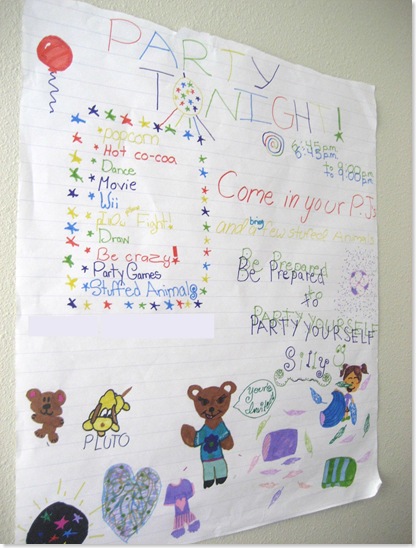 PARTY
TONIGHT!
*popcorn
*Hot co-coa
*Dance
*Movie
*Wii
Fight!
*Draw
*Be crazy!
*Party Games
*Stuffed Animals
6:45pm
6:45pm
to 9:00pm
Come in your P.Js
and bring a few stuffed Animals
Be Prepared
Be Prepared
to
PARTY YOURSELF
PARTY YOURSELF
Silly
PLUTO
You're
Invited